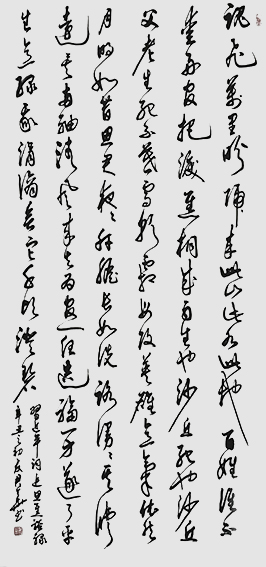 魂飛萬里盼歸来此山此水此地百姓誰不
愛好官把淚焦桐成雨生也沙丘死也沙丘
父老生死系暮雪朝霜毋改英雄意氣依然
月明如昔思君夜夜肝膽長如洗路漫漫其修
遠矣兩袖清風来去為官一任造福一方遂了平
生意綠我涓滴會它千頃澄碧
習近平詞追思焦裕禄
辛丑之初